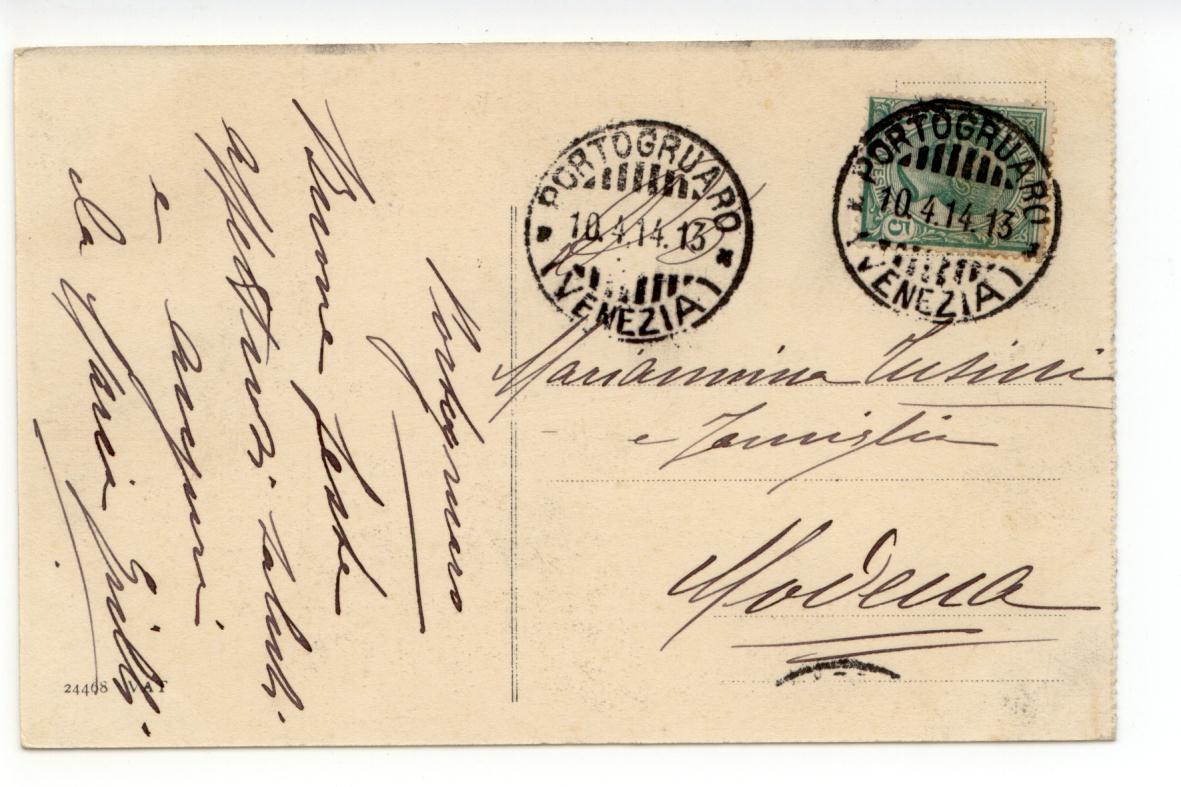 Portogruaro
Buone feste
affettuosi saluti
e auguri
da Maria
PORTOGRUARO
10.4.14.13
(VENEZIA)
PORTOGRUARO
10.4.14.13
(VENEZIA)
5
Mariannina
e Famiglia
Modena
24468 VAT